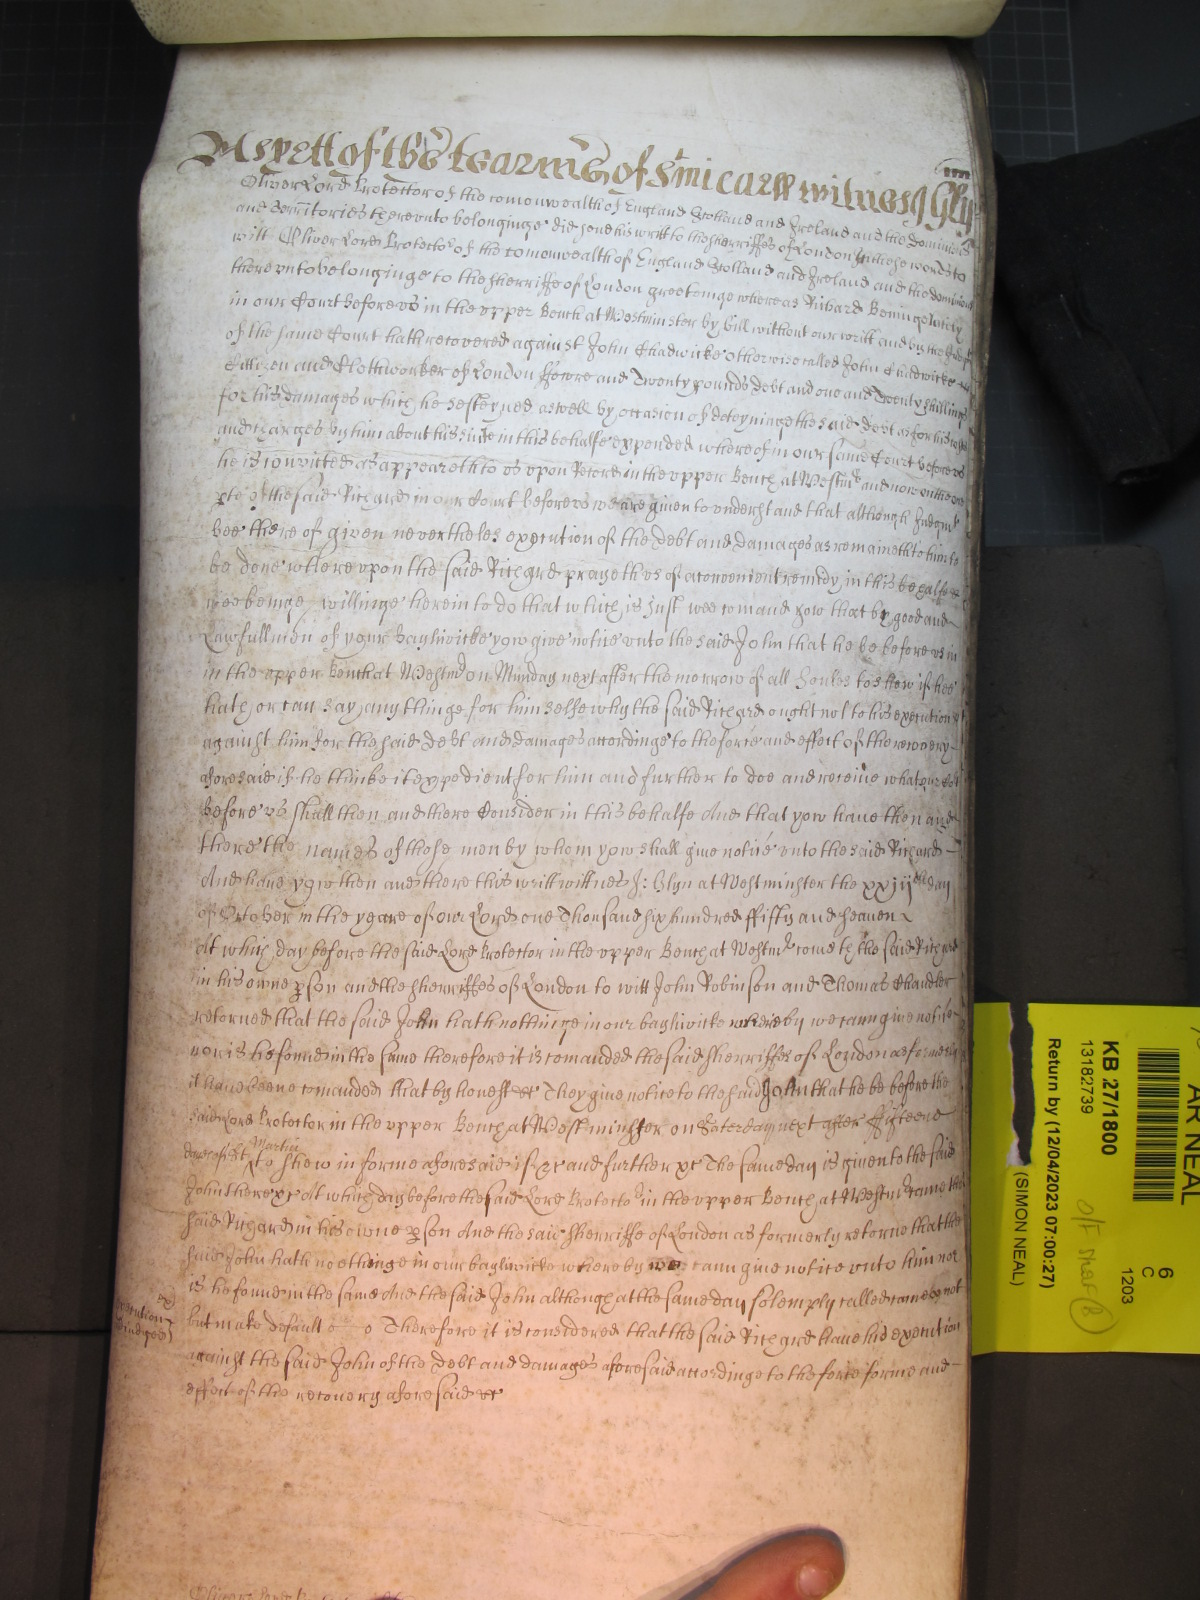 As yett of the tearme of St Michaell witnes Glyn
Oliver Lord Protector of the comonwealth of England Scotland and Ireland and the dominions
and Territories thereunto belonginge did send his writt to the sherriffes of London in these words to
witt Oliver Lord Protector of the comonwealth of England Scotland and Ireland and the dominions
thereunto belonginge to the sherriffe of London greetinge whereas Richard lately
in our Court before us in the upper Bench at Westminster by bill without our writt and by the Judgmt
of the same Court hath recovered against John Chadwicke otherwise called John Chadwicke
Cittizen and Clothworker of London ffowre and Twenty pounds debt and one and Twenty shillings
for his damages which he susteyned aswell by occasion of deteyninge the said debt as for his costs
and charges by him about his suite in this behalfe expended whereof in our same Court before us
he is convicted as appeareth to us upon Record in the upper Bench at Westmr and now on the
pte of the said Richard in our Court before us we are given to understand that although Judgmt
bee thereof given neverthelés execution of the debt and damages as remaineth to him to
be done whereupon the said Richard prayeth us of a convenient remedy in this behalfe &
wee beinge willinge herein to do that which is Just wee comand yow that by good and
Lawfull men of your bayliwicke yow give notice unto the said John that he be before us in
in the upper Bench at Westmr on Munday next after the morrow of all Soules to shew if hee
hath or can say any thinge for himselfe why the said Richard ought not to his execution
against him for the said debt and damages accordinge to the force and effect of the recovery
aforesaid if he thinke it expedient for him and further to doe and receive what our Court
before us shall then and there Consider in this behalfe And that yow have then and
there the names of those men by whom yow shall give notice unto the said Richard
And have yow then and there this writt witnes J: Glyn at Westminster the xxiijth day
of October in the yeare of our Lord one Thousand six hundred ffifty and seaven
At which day before the said Lord Protector in the upper Bench at Westmr cometh the said Richard
in his owne pson and the sherriffes of London to witt John Robinson and Thomas Chandler
retorned that the said John hath nothinge in our bayliwicke whereby we cann give notice
nor is he found in the same therefore it is comanded the said sherriffes of London as formerly
it have beene comanded that by honest &c They give notice to the said John that he be before the
said Lord Protector in the upper Bench at Westminster on Saterday next after ffifteene
dayes of St Martin to shew in forme aforesaid if &c and further &c The same day is given to the said
John there &c At which day before the said Lord Protector in the upper Bench at Westmr came the
said Richard in his owne pson And the said sherriffe of London as formerly retorne that the
said John hath noethinge in our bayliwicke whereby we cann give notice unto him nor
is he found in the same And the said John although at the same day solemply called came not
Execution
but make default Therefore it is considered that the said Richard have his execution
against the said John of the debt and damages aforesaid accordinge to the force forme and
effect of the recovery aforesaid &c
AR NEAL
6
C
1203
KB 27/1800
13182739
Return by (12/04/2023 07:00:27)
(SIMON NEAL)